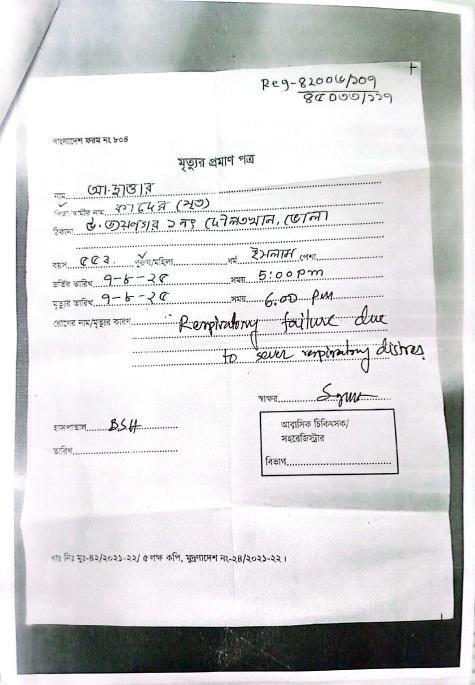 Reg-82006/109
85033/119
বাংলাদেশ ফরম নং ৮০৪
মৃত্যুর প্রমাণ পত্র
নাম আ: ছাত্তার
পিতা/স্বামীর নাম কাদের (মৃত)
ঠিকানা উ. জয়নগর ১ নং দৌলতখান, ভোলা
বয়স ৫৫ ব. পুরুষ/মহিলা ধর্ম ইসলাম পেশা
ভর্তির তারিখ ৭-৮-২৫ সময় 5:00 pm
মৃত্যুর তারিখ ৭-৮-২৫ সময় 6.00 Pm
রোগের নাম/মৃত্যুর কারণ Respiratory failure due
to sever respiratory distres
স্বাক্ষর
হাসপাতাল BSH
আবাসিক চিকিৎসক/
সহরেজিস্ট্রার
তারিখ
বিভাগ
বাঃ নিঃ মুঃ-৪২/২০২১-২২/ ৫ লক্ষ কপি, মুদ্রণাদেশ নং-২৪/২০২১-২২।